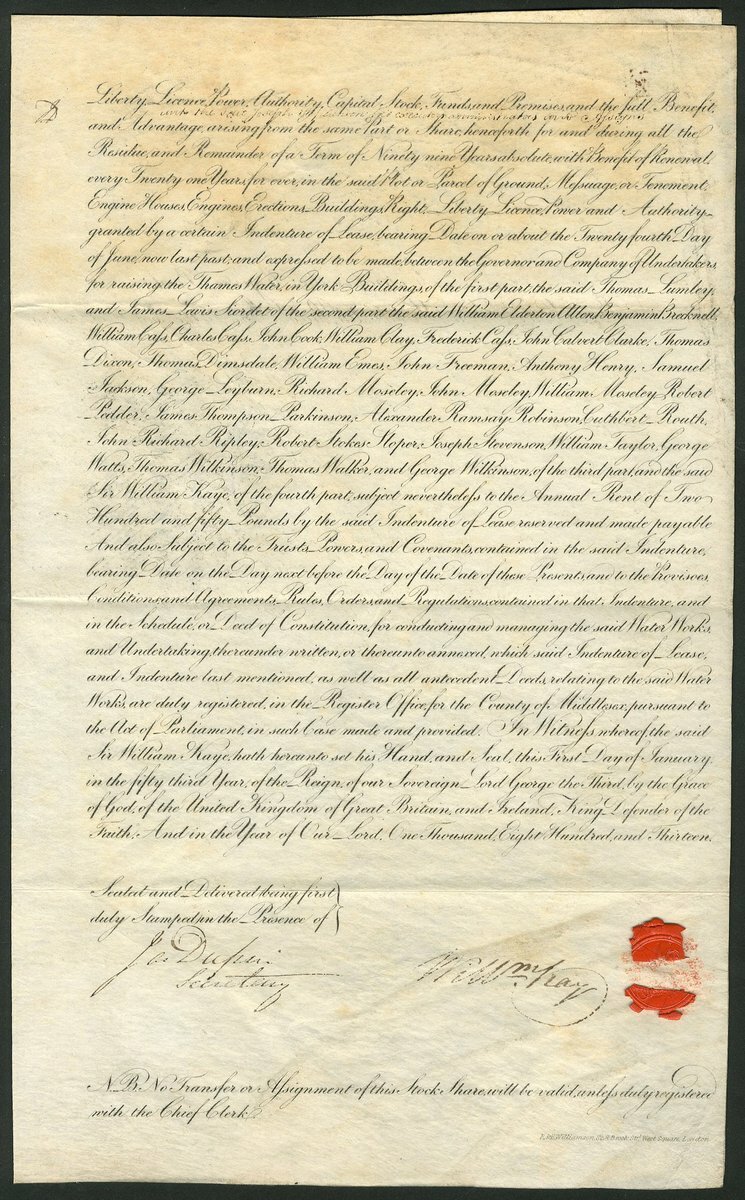 Liberty, Licence, Power, Authority, Capital Stock, Funds, and Premises, and the full Benefit,
unto the said Joseph executors administrators or assigns
and Advantage, arising from the same Part or Share, henceforth for and during all the
Residue, and Remainder of a Term of Ninety nine Years absolute, with Benefit of Renewal,
every Twenty one Years, for ever, in the said Plot or Parcel of Ground, Meſsuage, or Tenement,
Engine Houses, Engines, Erections, Buildings, Right, Liberty, Licence, Power and Authority
granted by a certain Indenture of Lease, bearing Date on or about the Twenty fourth Day
of June, now last past; and expressed to be made, between the Governor and Company of Undertakers,
for raising the Thames Water, in York Buildings, of the first part, the said Thomas Lumley,
and James Lewis Fiordet of the second part the said William Elderton Allen, Benjamin Brecknell,
William Caſs, Charles Caſs, John Cook, William Clay, Frederick Caſs, John Calvert Clarke, Thomas
Dixon, Thomas Dimsdale, William Emes, John Freeman, Anthony Henry, Samuel
Jackson, George Leyburn, Richard Moseley, John Moseley, William Moseley, Robert
Pedder, James Thompson Parkinson, Alexander Ramsay Robinson, Cuthbert Routh,
John Richard Ripley, Robert Stokes Sloper, Joseph Stevenson, William Taylor, George
Watts, Thomas Wilkinson, Thomas Walker, and George Wilkinson, of the third part, and the said
Sir William Kaye, of the fourth part; subject nevertheleſs to the Annual Rent of Two
Hundred and fifty Pounds by the said Indenture of Lease reserved and made payable
And also Subject to the Trusts, Powers, and Covenants, contained in the said Indenture,
bearing Date on the Day next before the Day of the Date of these Presents, and to the Provisoes,
Conditions, and Agreements, Rules, Orders, and Regulations, contained in that Indenture, and
in the Schedule, or Deed of Constitution, for conducting and managing the said Water Works,
and Undertaking, thereunder written, or thereunto annexed, which said Indenture of Lease,
and Indenture last mentioned, as well as all antecedent Deeds, relating to the said Water
Works, are duly registered, in the Register Office, for the County of Middlesex, pursuant to
the Act of Parliament, in such Case made and provided. In Witneſs whereof, the said
Sir William Kaye, hath hereunto set his Hand, and Seal, this First Day of January,
in the fifty third Year, of the Reign, of our Sovereign Lord George the Third, by the Grace
of God, of the United Kingdom of Great Britain, and Ireland, King, Defender of the
Faith, And in the Year of Our Lord, One Thousand, Eight Hundred, and Thirteen.
Sealed and Delivered (being first
duly Stamped) in the Presence of
Secretary
Wm Kay
N.B. No Transfer or Aſsignment of this Stock Share, will be valid, unleſs duly registered
with the Chief Clerk.
Williamson, Brook Str. West Square, London